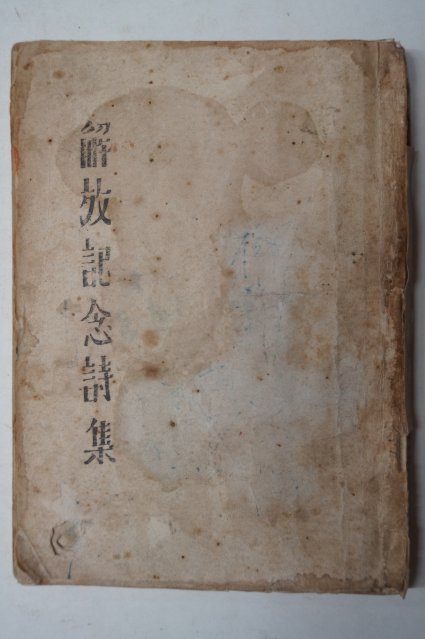 解放記念詩集